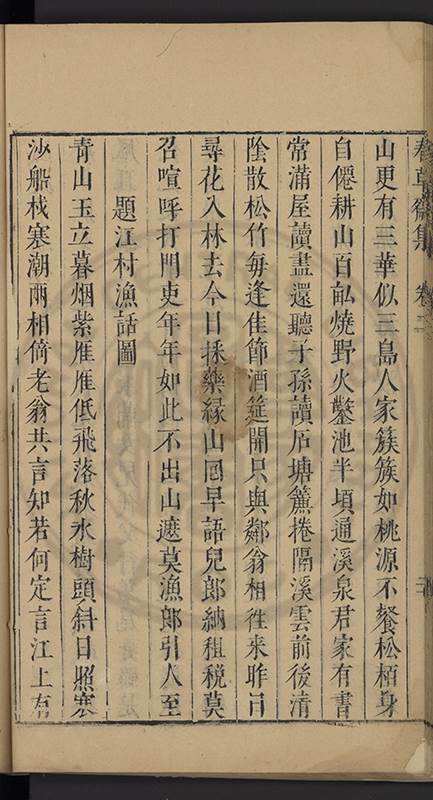 春草齋集 卷二
山更有三華似三島人家簇簇如桃源不餐松栢身
自僊耕山百畝燒野火鑿池半頃通溪泉君家有書
常滿屋讀盡還聽子孫讀戶塘簾捲隔溪雲前後清
陰散松竹每逢佳節酒筵開只與鄰翁相往來昨日
尋花入林去今日採藥緣山回早語兒郎納租稅莫
召喧呼打門吏年年如此不出山遮莫漁郎引人至
題江村漁話圖
青山玉立暮烟紫雁雁低飛落秋水樹頭斜日照寒
沙船栈寒潮兩相倚老翁共言知若何定言江上有